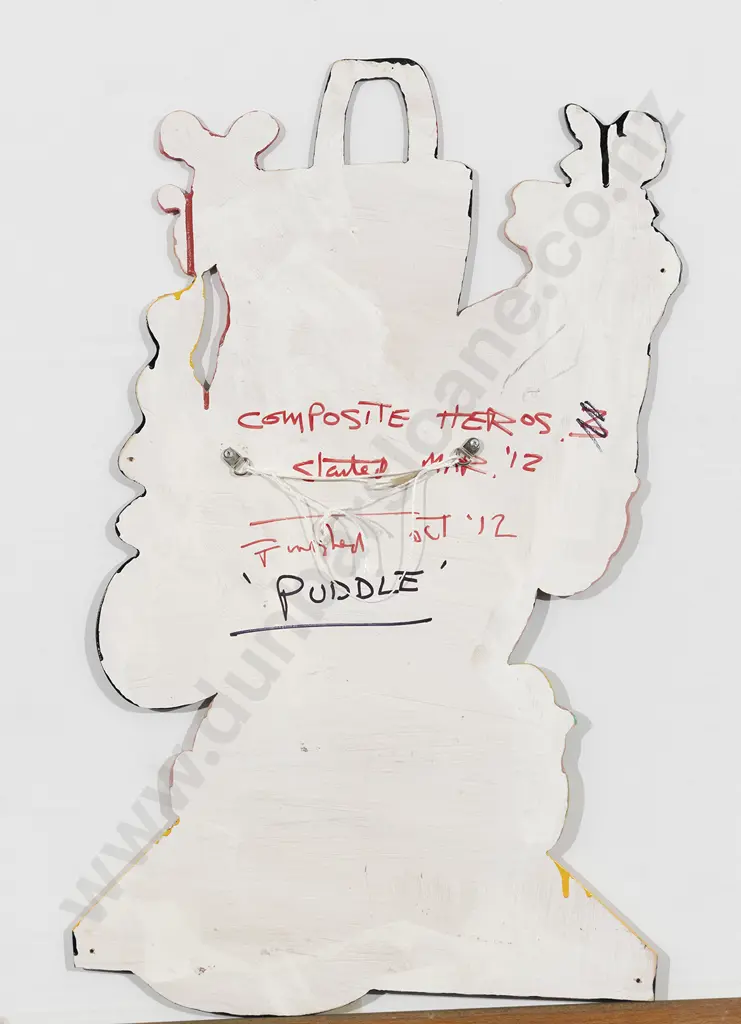 COMPOSITE HEROS.
Started MAR. '12
Finished OCT '12
'PUDDLE'
www.dunbarsloane.co.nz